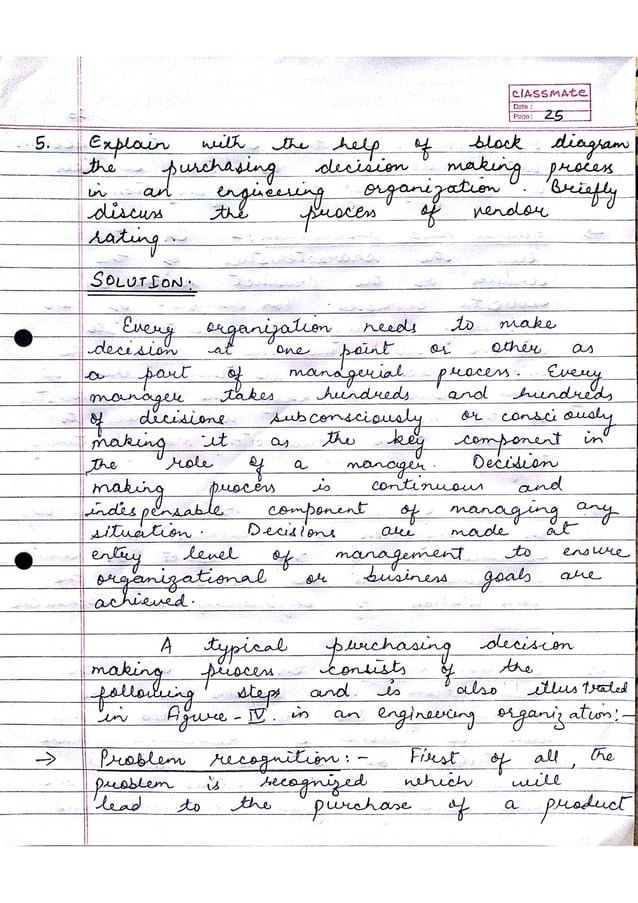 classmate
Date :
Page: 25
5. Explain with the help of block diagram
the purchasing decision making process
in an engineering organization. Briefly
discuss the process of vendor
rating.
SOLUTION:
Every organization needs to make
decision at one point or other as
a part of managerial process. Every
manager takes hundreds and hundreds
of decisions subconsciously or consciously
making it as the key component in
the role of a manager. Decision
making process is continuous and
indespensable component of managing any
situation. Decisions are made at
entry level of management to ensure
organizational or business goals are
achieved.
A typical purchasing decision
making process consists of the
following steps and is also illustrated
in Figure-IV. in an engineering organization:-
→ Problem recognition:- First of all, the
problem is recognized which will
lead to the purchase of a product